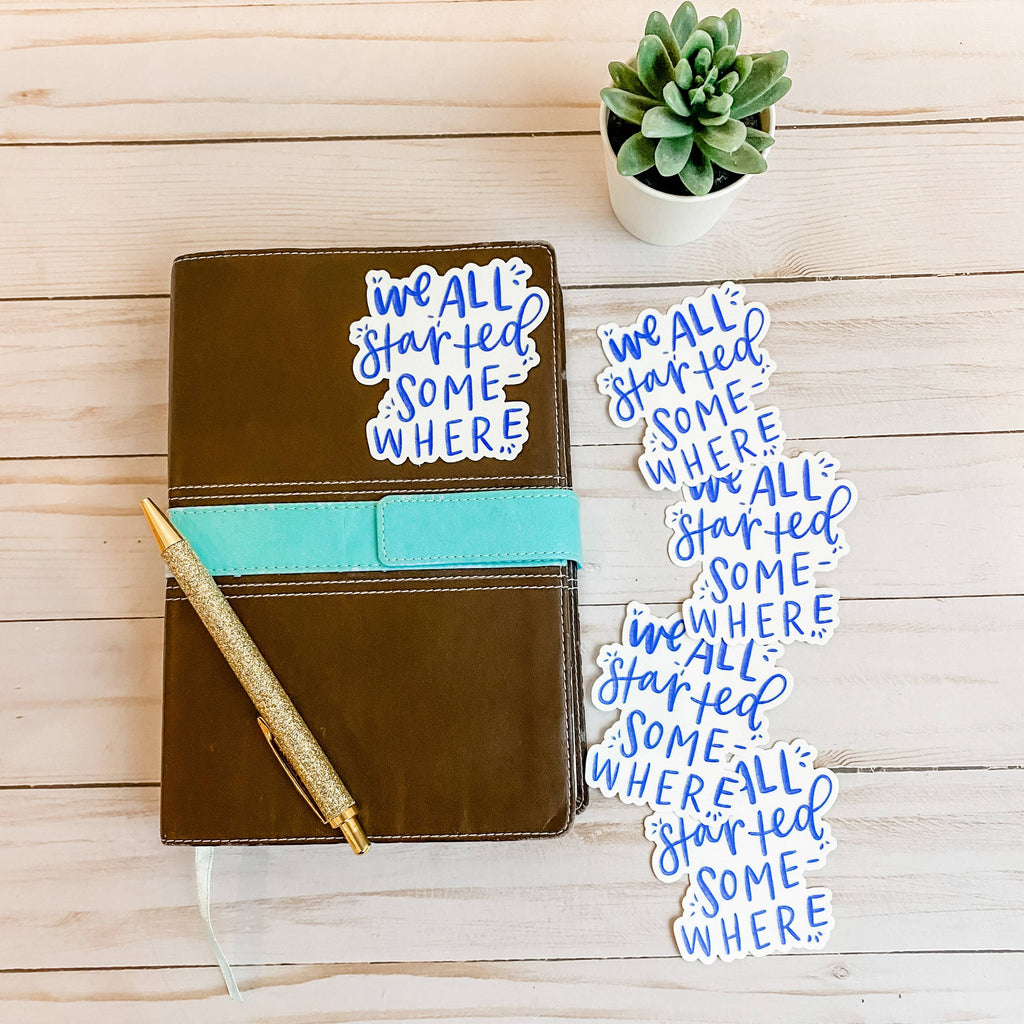 we ALL
started
SOME-
WHERE
we ALL
started
SOME-
WHERE
we ALL
started
SOME-
WHERE
we ALL
started
SOME-
WHERE
ALL
started
SOME-
WHERE